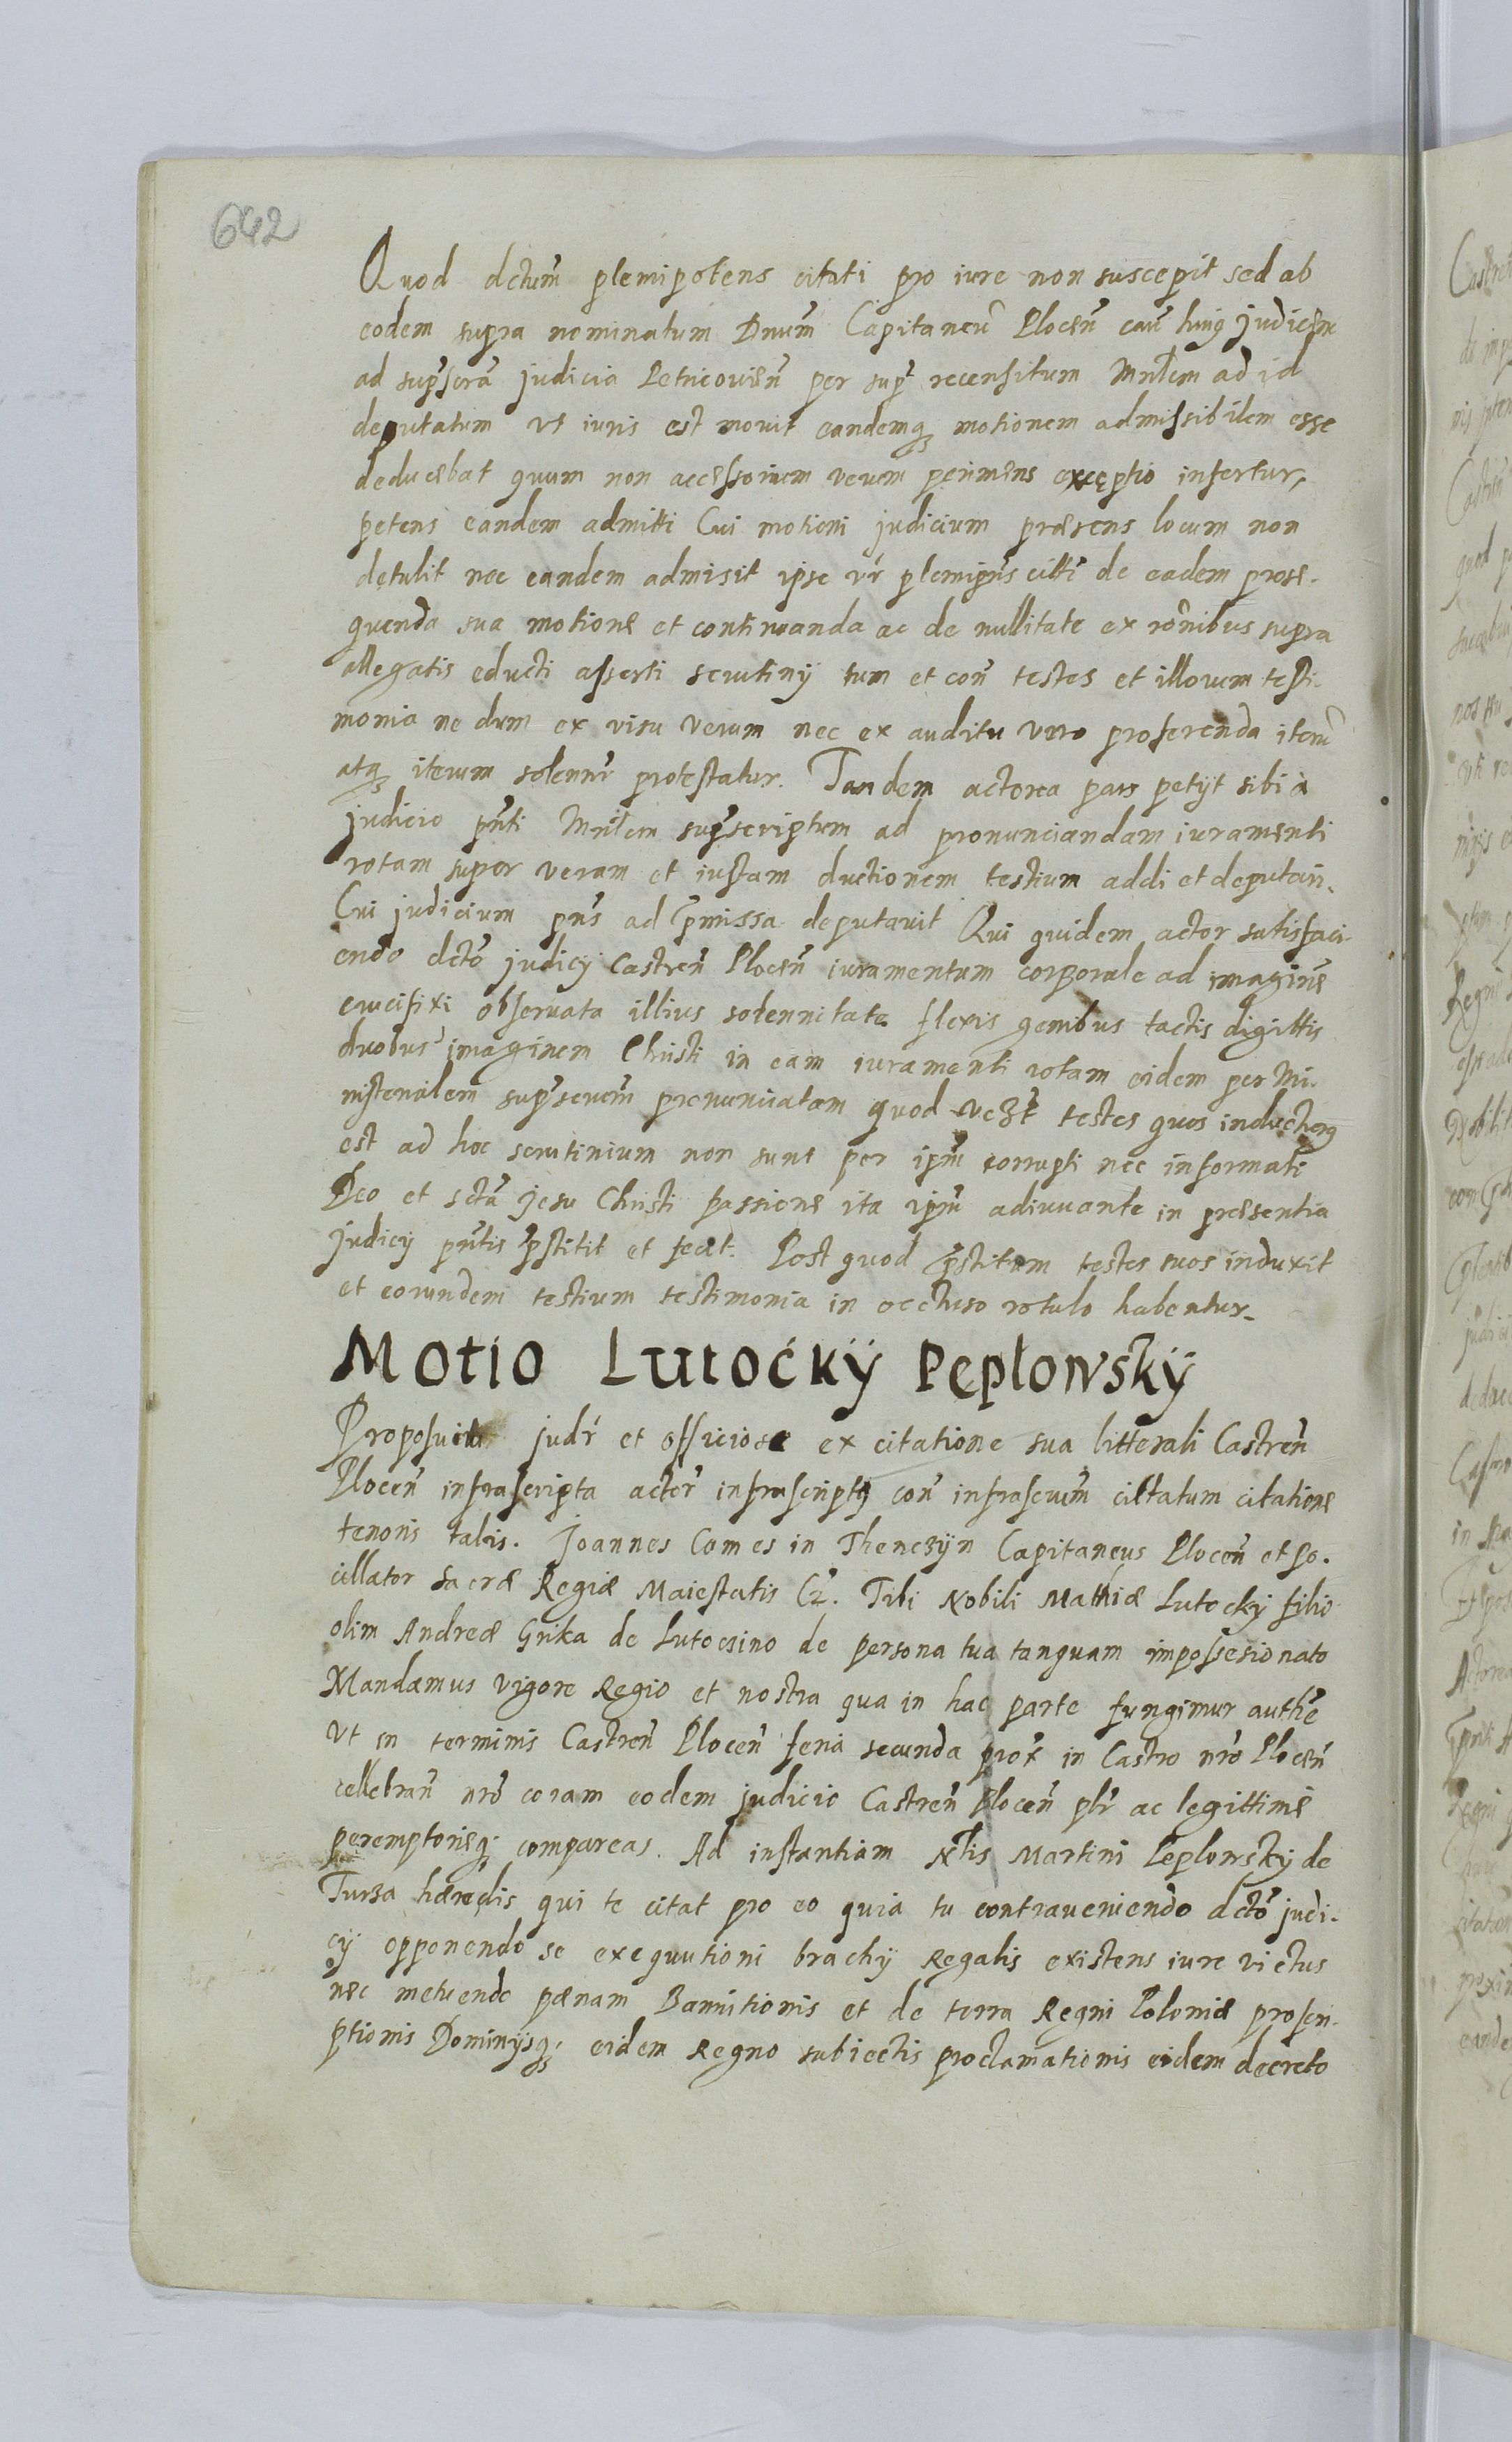 642
Quod dctum̃ plenipotens citati pro iure non suscepit sed ab
eodem supra nominatum Dnum̃ Capitaneũ Plocen̄ cau͂ huiꝯ Judicem
ad supͬscra͂ judicia Petricovien̄ per supͬ recensitum Mnłem ad id
deputatum ut iuris est movit eandemqꝫ motionem admissibilem esse
deducebat quum non accessorium verum perimens exceptio infertur,
petens eandem admitti Cui motioni judicium præsens locum non
detulit nec eandem admisit ipse vr̃ plenipn̄s citti de eadem prose-
quenda sua motione et continuanda ac de nullitate ex rõnibus supra
allegatis educti asserti scrutinÿ tum et con̄ testes et illorum testi-
monia ne dum ex visu verum nec ex auditu vero proferenda iterũ
atqꝫ iterum solennr̃ protestatur. Tandem actorea pars petÿt sibi à
judicio pn̄ti Mnłem supͬscriptum ad pronunciandam iuramenti
rotam super veram et iustam ductionem testium addi et deputari.
Cui judicium pn̄s ad p̄missa deputavit Qui quidem actor satisfaci-
endo dctõ judicÿ Castren̄ Plocen̄ iuramentum corporale ad imaginẽ
crucifixi observata illius solennitate flexis genibus tactis digittis
duobus imaginem Christi in eam iuramenti rotam eidem per Mi-
nisterialem supͬscrum̃ pronunciatam quod testes quos inducturꝯ
est ad hoc scrutinium non sunt per ipm̃ corrupti nec informati
Deo et sctã Jesu Christi passione ita ipm̃ adiuvante in præsentia
Judicÿ pn̄tis p̄stitit et fecit. Post quod p̄stitum testes suos induxit
et eorundem testium testimonia in occluso rotulo habentur.
Motio Lutoćkÿ Pepłowskÿ
Proposuit judr̃ et officiose ex citatione sua litterali Castren̄
Plocen̄ infrascripta actor̃ infrascriptꝯ con̄ infrascrum̃ cittatum citatione
tenoris talis. Joannes Comes in Thenczÿn Capitaneus Plocen̄ et so-
cillator Sacræ Regiæ Maiestatis Cz. Tibi Nobili Mathiæ Lutockÿ filio
olim Andreæ Grika de Lutoczino de persona tua tanquam impossesionato
Mandamus vigore Regio et nostra qua in hac parte fungimur authẽ
Ut in terminis Castren̄ Plocen̄ feria secunda prox̃ in Castro nrõ Plocen̄
cellebran̄ nrõ coram eodem judicio Castren̄ Plocen̄ plr̃ ac legittime
peremptorieqꝫ compareas. Ad instantiam Nłis Martini Peplowskÿ de
Turza hæredis qui te citat pro eo quia tu contraveniendo dctõ judi-
cÿ opponendo se exequutioni brachÿ Regalis existens iure victus
nec metuendo pœnam Bannitionis et de terra Regni Poloniæ proscri-
ptionis Dominÿsqꝫ eidem Regno subiectis proclamationis eidem decreto